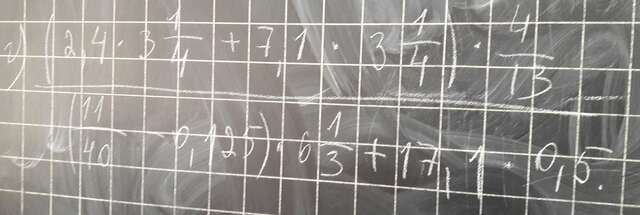 г) (2,4 · 3 1/4 + 7,1 · 3 1/4) · 4/13
(11/40 - 0,125) · 6 1/3 + 17,1 · 0,5.